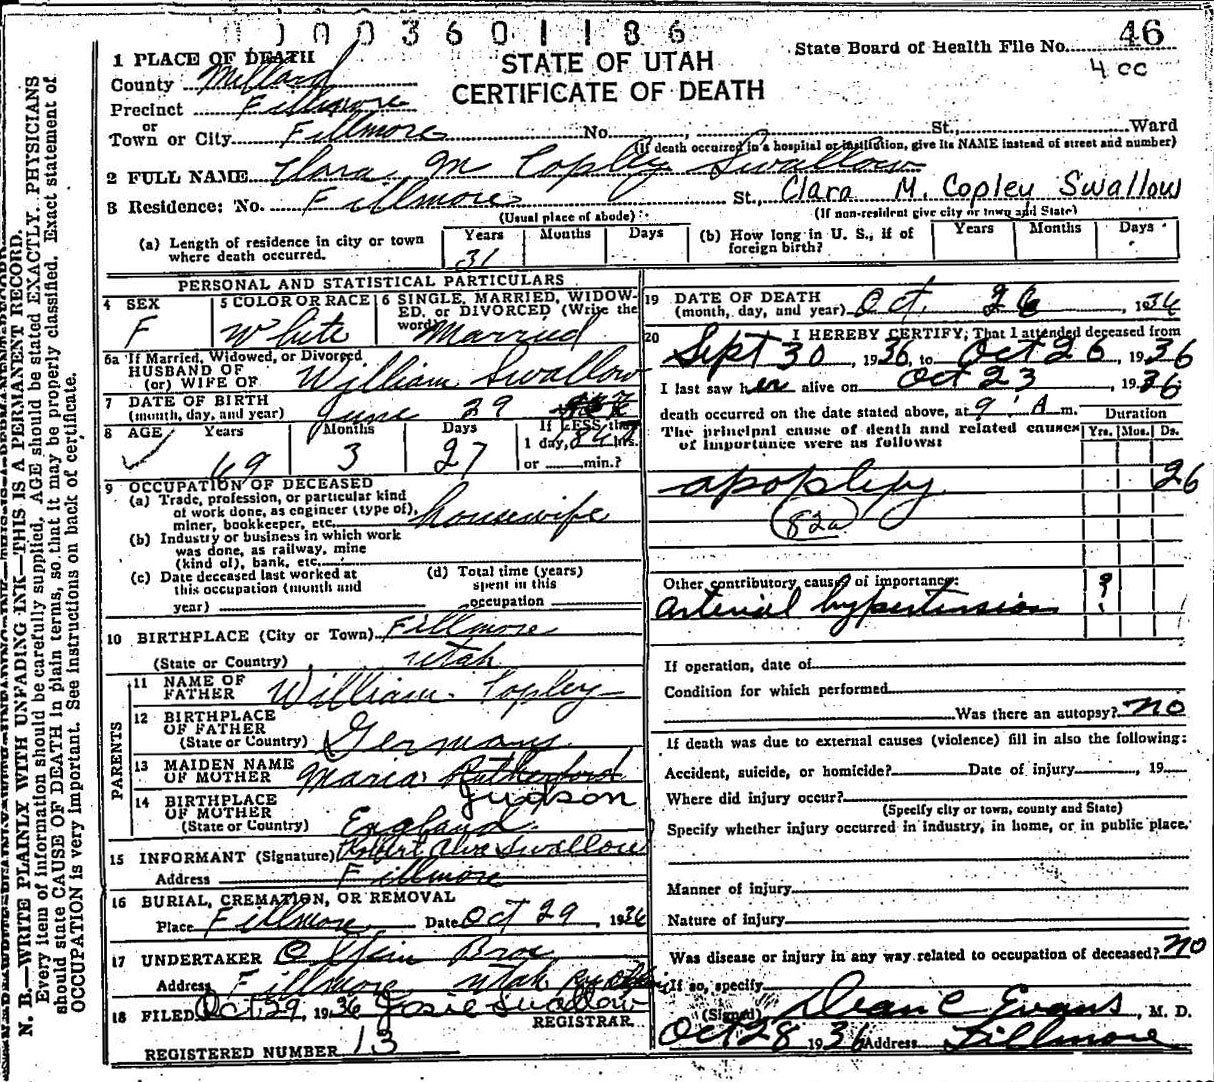 0 0 0 3 6 0 1 1 8 6
State Board of Health File No. 46
4 cc
STATE OF UTAH
CERTIFICATE OF DEATH
1 PLACE OF DEATH
County Millard
Precinct Fillmore
or
Town or City Fillmore No. , St., Ward
(If death occurred in a hospital or institution, give its NAME instead of street and number)
2 FULL NAME Clara M Copley Swallow
3 Residence: No. Fillmore St., Clara M. Copley Swallow
(Usual place of abode) (If non-resident give city or town and State)
(a) Length of residence in city or town where death occurred. Years 31 Months Days
(b) How long in U. S., if of foreign birth? Years Months Days
PERSONAL AND STATISTICAL PARTICULARS
4 SEX
F
5 COLOR OR RACE
White
6 SINGLE, MARRIED, WIDOWED, or DIVORCED (Write the word)
Married
6a If Married, Widowed, or Divorced
HUSBAND OF
(or) WIFE OF William Swallow
7 DATE OF BIRTH
(month, day, and year) June 29
8 AGE Years Months Days If LESS than
1 day, hrs.
69 3 27 or min.?
9 OCCUPATION OF DECEASED
(a) Trade, profession, or particular kind
of work done, as engineer (type of),
miner, bookkeeper, etc. housewife
(b) Industry or business in which work
was done, as railway, mine
(kind of), bank, etc.
(c) Date deceased last worked at
this occupation (month and
year)
(d) Total time (years)
spent in this
occupation
10 BIRTHPLACE (City or Town) Fillmore
(State or Country) Utah
PARENTS
11 NAME OF
FATHER William Copley
12 BIRTHPLACE
OF FATHER
(State or Country) Germany
13 MAIDEN NAME
OF MOTHER Maria Rutherford
Judson
14 BIRTHPLACE
OF MOTHER
(State or Country) England
15 INFORMANT (Signature) Swallow
Address Fillmore
16 BURIAL, CREMATION, OR REMOVAL
Place Fillmore Date Oct 29 1936
17 UNDERTAKER Bros
Address Fillmore Utah
18 FILED Oct. 29, 1936 Josie Swallow
REGISTRAR
REGISTERED NUMBER 13
19 DATE OF DEATH
(month, day, and year) Oct. 26 1936
20 I HEREBY CERTIFY, That I attended deceased from
Sept 30, 1936, to Oct 26, 1936
I last saw her alive on Oct 23, 1936
death occurred on the date stated above, at 9 A m.
Duration
The principal cause of death and related causes
of importance were as follows:
Yrs. Mos. Ds.
apoplexy 26
82a
Other contributory causes of importance:
arterial hypertension ?
If operation, date of
Condition for which performed
Was there an autopsy? no
If death was due to external causes (violence) fill in also the following:
Accident, suicide, or homicide? Date of injury , 19
Where did injury occur?
(Specify city or town, county and State)
Specify whether injury occurred in industry, in home, or in public place.
Manner of injury
Nature of injury
Was disease or injury in any way related to occupation of deceased? no
If so, specify
(Signed) Dean C Evans, M. D.
Oct 28 1936 Address Fillmore
N. B.—WRITE PLAINLY WITH UNFADING INK—THIS IS A PERMANENT RECORD.
Every item of information should be carefully supplied. AGE should be stated EXACTLY. PHYSICIANS
should state CAUSE OF DEATH in plain terms, so that it may be properly classified. Exact statement of
OCCUPATION is very important. See instructions on back of certificate.